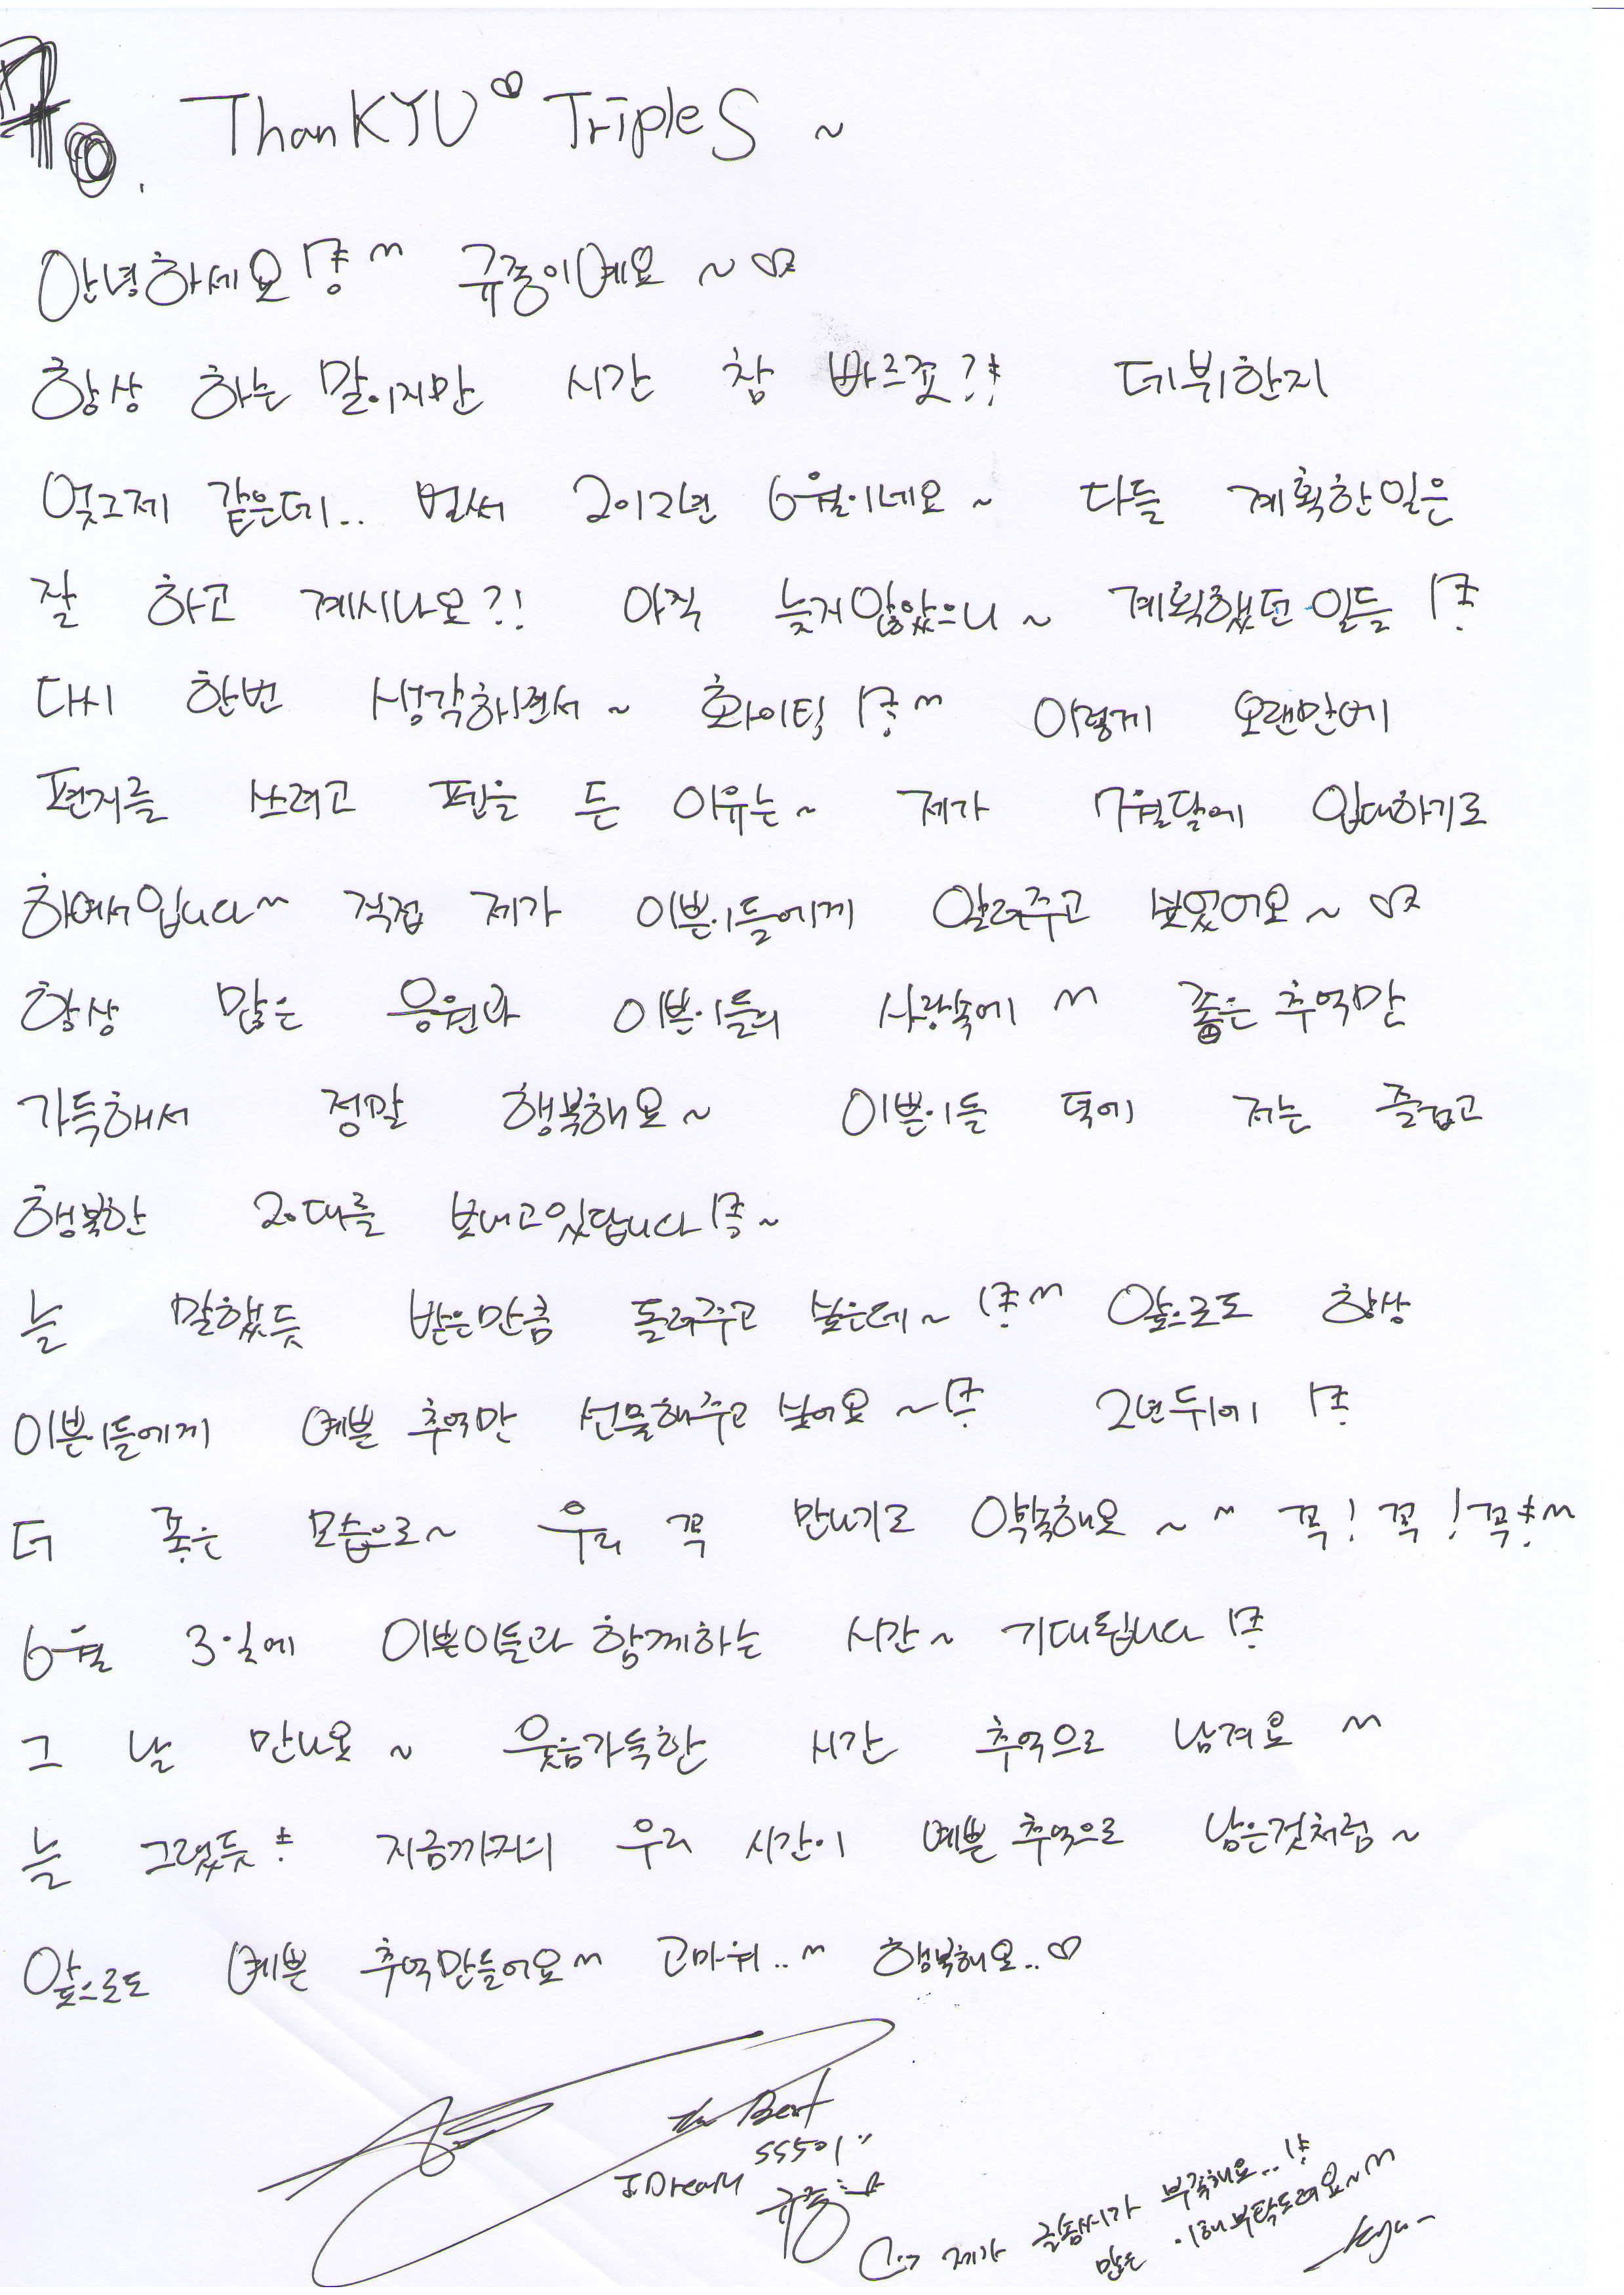 To. ThanKYU♡ TripleS ~
안녕하세요!? ^^ 규종이예요 ~♡
항상 하는 말이지만 시간 참 빠르죠?! 데뷔한지
엊그제 같은데.. 벌써 2012년 6월이네요~ 다들 계획한일은
잘 하고 계시나요?! 아직 늦지않았으니~ 계획했던일들!?
다시 한번 생각하면서~ 화이팅!? ^^ 이렇게 오랜만에
편지를 쓰려고 펜을 든 이유는~ 제가 7월달에 입대하기로
하여서입니다^^ 직접 제가 이쁜이들에게 알려주고 싶었어요~♡
항상 많은 응원과 이쁜이들의 사랑속에 ^^ 좋은추억만
가득해서 정말 행복해요~ 이쁜이들 덕에 저는 즐겁고
행복한 20대를 보내고있답니다!?~
늘 말했듯 받은만큼 돌려주고 싶은데~!? ^^ 앞으로도 항상
이쁜이들에게 예쁜 추억만 선물해주고 싶어요~!? 2년뒤에!?
더 좋은 모습으로~ 우리 꼭 만나기로 약속해요~^^ 꼭! 꼭! 꼭!^^
6월 3일에 이쁜이들과 함께하는 시간~ 기대됩니다!?
그 날 만나요~ 웃음가득한 시간 추억으로 남겨요 ^^
늘 그랬듯! 지금까지의 우리 시간이 예쁜 추억으로 남은것처럼~
앞으로도 예쁜 추억만들어요^^ 고마워..^^ 행복해요..♡
The Best
SS501
I Dream
규종
제가 글씨가 부족해요..!
많은 이해부탁드려요~^^
kyu-